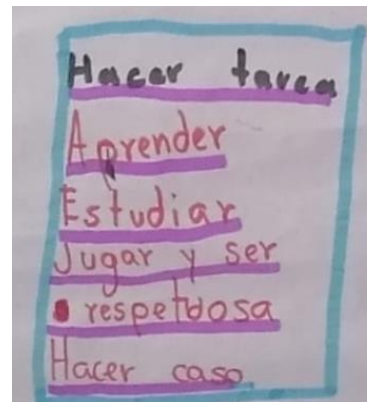 Hacer tarea
Aprender
Estudiar
Jugar y ser
respetuosa
Hacer caso